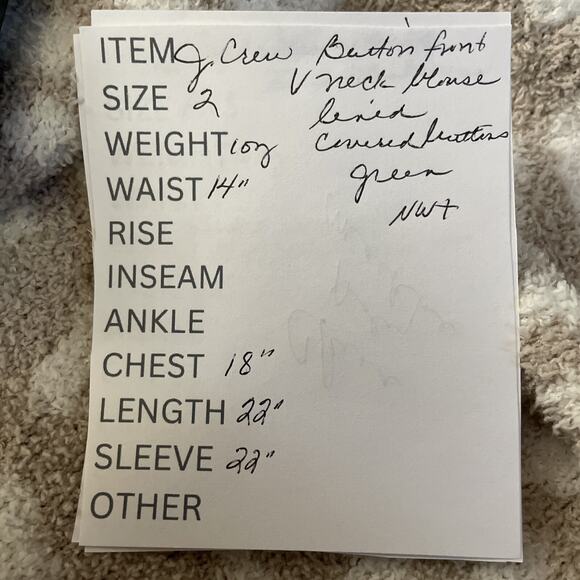 ITEM J. Crew Button front
V neck blouse
SIZE 2
lined
WEIGHT 10z covered buttons
WAIST 14" green
NWT
RISE
INSEAM
ANKLE
CHEST 18"
LENGTH 22"
SLEEVE 22"
OTHER